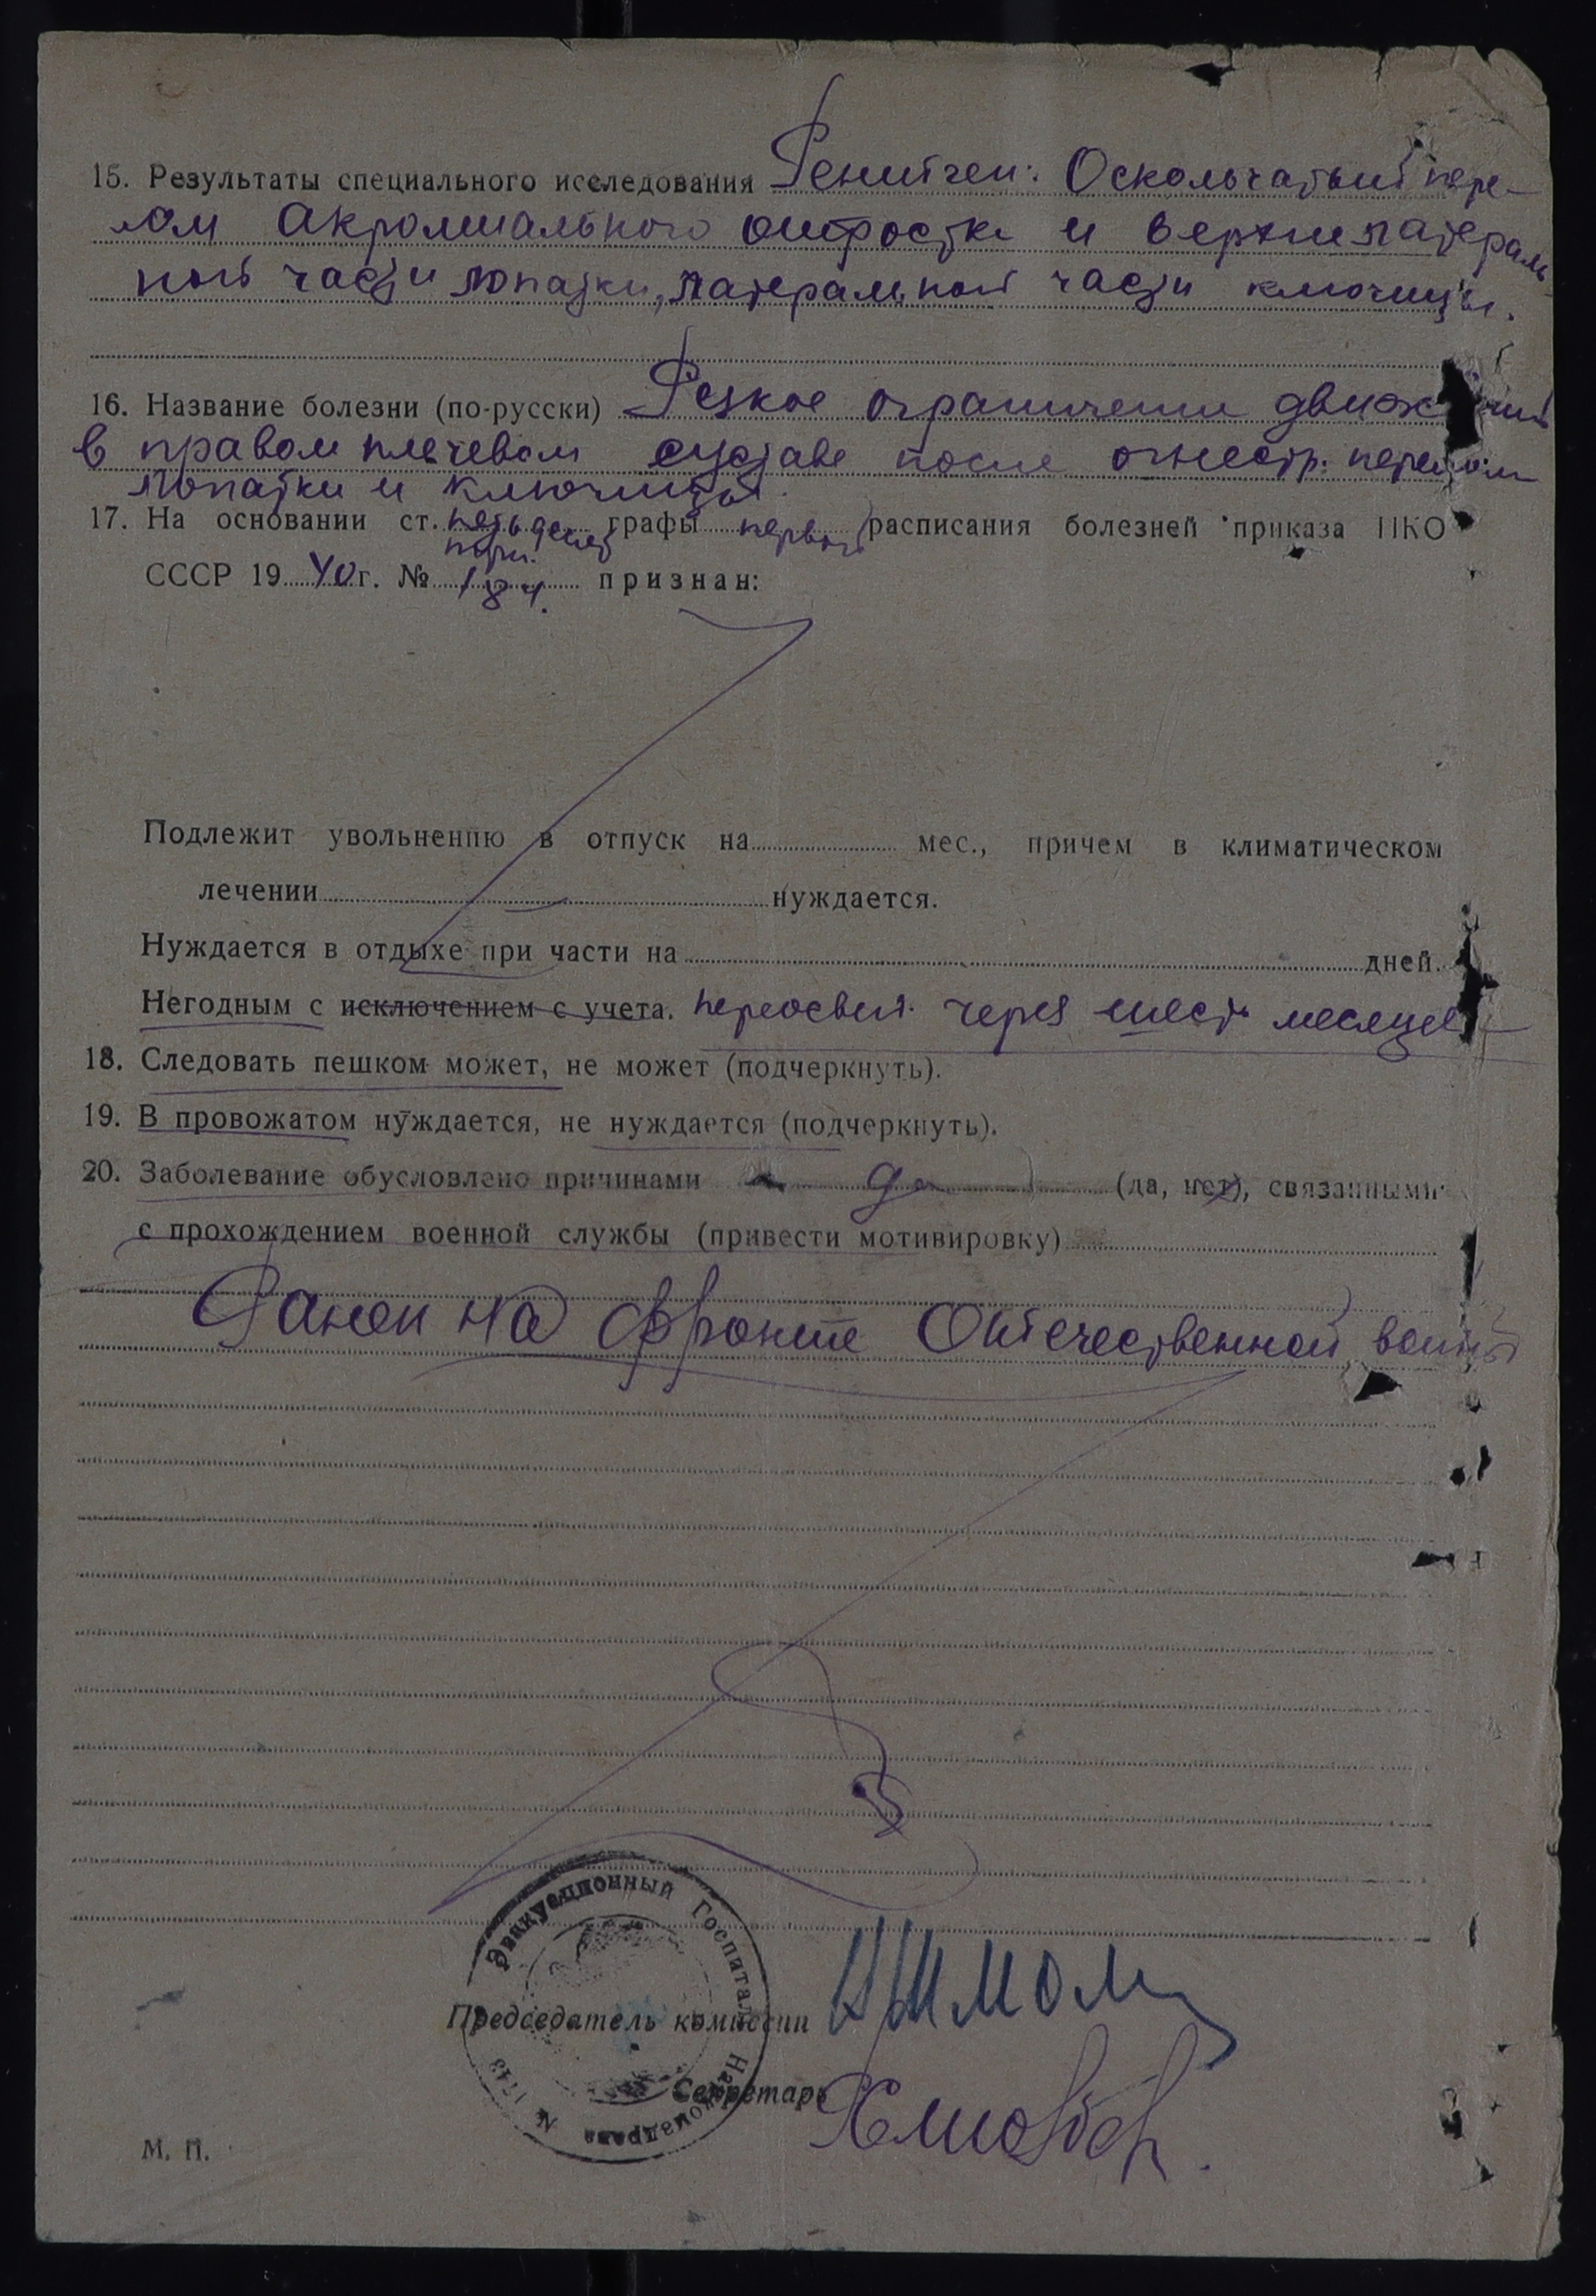 15. Результаты специального исследования Рентген: Оскольчатый пере-
лом акромиального отростка и верхнелатераль
ной части лопатки, латеральной части ключицы.
16. Название болезни (по-русски) Резкое ограничение движений
в правом плечевом суставе после огнестр. перелом
лопатки и ключицы.
17. На основании ст. графы первой расписания болезней приказа НКО
СССР 19 40 г. № 184. признан:
Подлежит увольнению в отпуск на мес., причем в климатическом
лечении нуждается.
Нуждается в отдыхе при части на дней.
Негодным с исключением с учета. переосвид. через шесть месяцев
18. Следовать пешком может, не может (подчеркнуть).
19. В провожатом нуждается, не нуждается (подчеркнуть).
20. Заболевание обусловлено причинами да (да, нет), связанными
с прохождением военной службы (привести мотивировку)
Ранен на фронте Отечественной войны
Эвакуационный Госпиталь
Наркомздрава № 1749
Председатель комиссии
Секретарь
М. П.